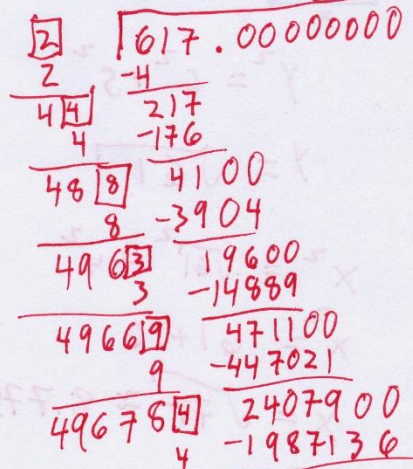 2 617.00000000
2 -4
44 217
4 -176
488 4100
8 -3904
4963 19600
3 -14889
49669 471100
9 -447021
496784 2407900
4 -1987136